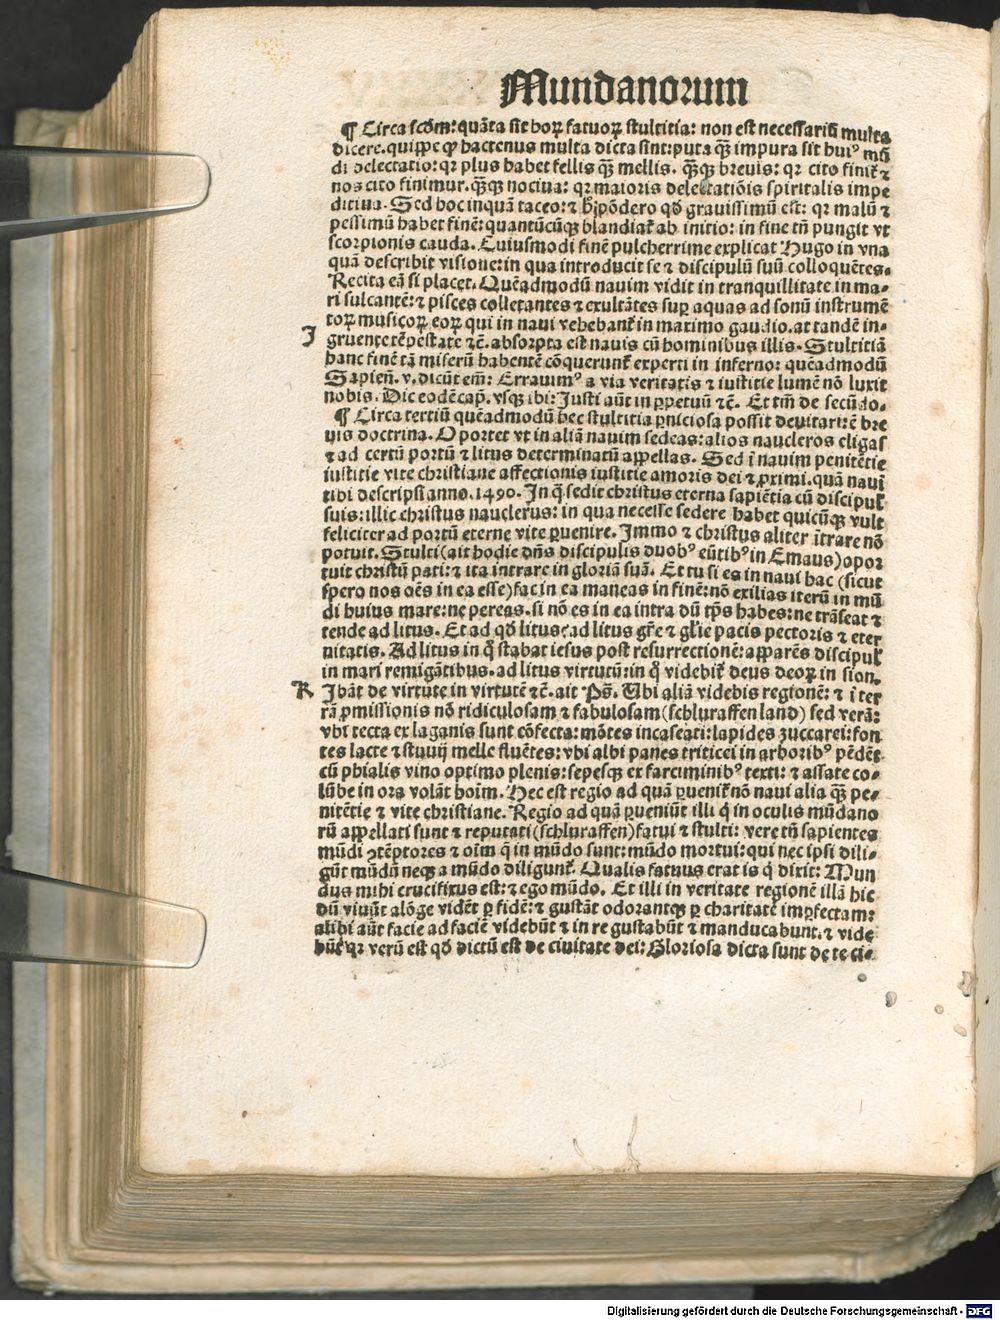 Mundanorum
¶ Circa scd̄m: quāta sit horꝝ fatuorꝝ stultitia: non est necessariū multa
dicere. quippe ꝙ hactenus multa dicta sint: puta ꝙ̄ impura sit huiꝰ mū
di delectatio: qꝛ plus habet fellis ꝙ̄ mellis. ꝙ̄qꝫ breuis: qꝛ cito finit̉ ⁊
nos cito finimur. ꝙ̄qꝫ nociua: qꝛ maioris delectatiōis spiritalis impe
ditiua. Sed hoc inquā taceo: ⁊ h̓ pōdero qd̓ grauissimū est: qꝛ malū ⁊
pessimū habet finē: quantūcūqꝫ blandiat̉ ab initio: in fine tn̄ pungit vt
scorpionis cauda. Cuiusmodi finē pulcherrime explicat Hugo in vna
quā describit visione: in qua introducit se ⁊ discipulū suū colloquētes.
Recita eā si placet. Quēadmodū nauim vidit in tranquillitate in ma
ri sulcantē: ⁊ pisces colletantes ⁊ exultātes suꝑ aquas ad sonū instrumē
torꝝ musicorꝝ eorꝝ qui in naui vehebant̉ in maximo gaudio. at tandē in⸗
I
gruente tēpestate ⁊c̄. absorpta est nauis cū hominibus illis. Stultitiā
hanc finē tā miserū habentē cōquerunt̉ experti in inferno: quēadmodū
Sapien̄. v. dicūt em̄: Errauimꝰ a via veritatis ⁊ iustitie lumē nō luxit
nobis. Dic eodē cap̄. vsqꝫ ibi: Justi aūt in ꝑpetuū ⁊c̄. Et tm̄ de secūdo.
¶ Circa tertiū quēadmodū hec stultitia ꝑniciosa possit deuitari: ē bre
uis doctrina. Oportet vt in aliā nauim sedeas: alios naucleros eligas
⁊ ad certū portū ⁊ litus determinatū appellas. Sed ī nauim penitētie
iustitie vite christiane affectionis iustitie amoris dei ⁊ ꝓximi. quā nauī
tibi descripsi anno. 1490. In q̄ sedit christus eterna sapiētia cū discipul̓
suis: illic christus nauclerus: in qua necesse sedere habet quicūqꝫ vult
feliciter ad portū eterne vite ꝑuenire. Immo ⁊ christus aliter ītrare nō
potuit. Stulti (ait hodie dn̄s discipulis duobꝰ eūtibꝰ in Emaus) opor
tuit christū pati: ⁊ ita intrare in gloriā suā. Et tu si es in naui hac (sicut
spero nos oēs in ea esse) fac in ea maneas in finē: nō exilias iterū in mū
di huius mare: ne pereas. si nō es in ea intra dū tp̄s habes: ne trāseat ⁊
tende ad litus. Et ad qd̓ litus: ad litus gr̄e ⁊ gl̓ie pacis pectoris ⁊ eter
nitatis. Ad litus in q̊ stabat iesus post resurrectionē: apparēs discipul̓
in mari remigātibus. ad litus virtutū: in q̊ videbit̉ deus deorꝝ in sion.
R
Ibāt de virtute in virtutē ⁊c̄. ait Ps̄. Ubi aliā videbis regionē: ⁊ ī ter
rā ꝓmissionis nō ridiculosam ⁊ fabulosam (schluraffen land) sed verā:
vbi tecta ex laganis sunt cōfecta: mōtes incaseati: lapides zuccarei: fon
tes lacte ⁊ stuuij melle fluētes: vbi albi panes triticei in arboribꝰ pēdēt
cū phialis vino optimo plenis: sepesqꝫ ex farciminibꝰ texti: ⁊ assate co⸗
lūbe in ora volāt hoīm. Hec est regio ad quā ꝑuenit̉ nō naui alia ꝙ̄ pe⸗
nitētie ⁊ vite christiane. Regio ad quā ꝑueniūt illi q̇ in oculis mūdano
rū appellati sunt ⁊ reputati (schluraffen) fatui ⁊ stulti: vere tn̄ sapientes
mūdi ꝯtēptores ⁊ oīm q̇ in mūdo sunt: mūdo mortui: qui nec ipsi dili⸗
gūt mūdū neqꝫ a mūdo diligunt̉. Qualis fatuus erat is q̇ dixit: Mun
dus mihi crucifixus est: ⁊ ego mūdo. Et illi in veritate regionē illā hic
dū viuūt alōge vidēt ꝑ fidē: ⁊ gustāt odorantqꝫ ꝑ charitatē imꝑfectam:
alibi aūt facie ad faciē videbūt ⁊ in re gustabūt ⁊ manducabunt. ⁊ vide
būt qꝛ verū est qd̓ dictū est de ciuitate dei: Gloriosa dicta sunt de te ci⸗
Digitalisierung gefördert durch die Deutsche Forschungsgemeinschaft - DFG